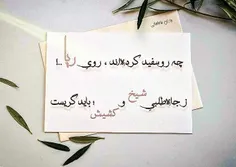 چه روسفید کرده‌اند، روی ریا ...!
ز جاه‌طلبی شیخ و کشیش، باید گریست